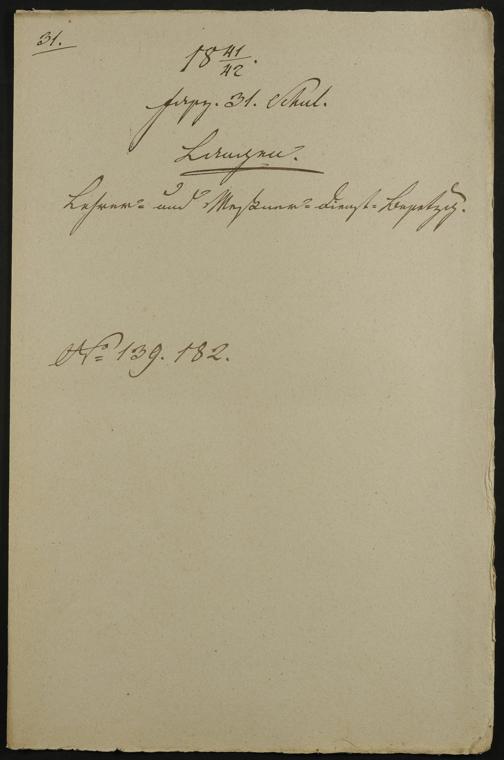 31.
18 41/42.
Fasz. 31. Schul.
Langen.
Lehrer- und Meßner-Dienst-Besetzg.
No 139. 182.